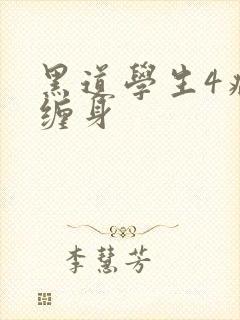 黑道學生4病
缠身
李慧芳